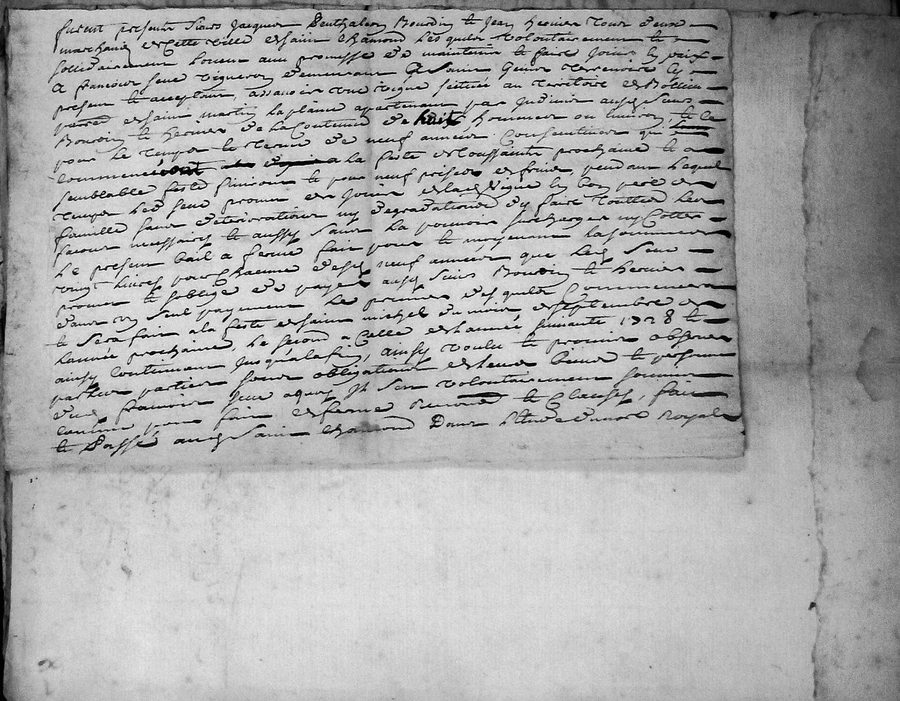 furent presents sieurs Jacques Penthaleon Bourdin et Jean hervier tous deux
marchands de cette ville de saint chamond lesquels volontairement et
solidairement louent avec promesse de maintenir et faire jouir en paix
A francois seve vigneron demeurant a saint Genis terrenoire cy
present et acceptant, assavoir une vigne scituée au territoire de
paroisse de saint martin la plaine apartenant par Indivis ausd sieurs
Bourdin et hervier de la Contenue de huit hommees ou environ, et ce
pour le temps et terme de neuf années Consentives qui
commenceront a la feste de toussaints prochaine et a
semblable feste finiront et pour neuf prises de fruits, pendant lequel
temps led seve promet de jouir de lad vigne en bon pere de
famille sans deteriorations ny degradations dy faire toutes les
facons necessaires et aussy sans la pouvoir surcharger ny
le present bail a ferme fait pour et moyenant la somme de
vingt livres pour chacune desd neuf années que led seve
promet et soblige de payer ausd sieurs Bourdin et hervier
dans un seul payement le premier desquels Commencera
et sera fait a la feste de saint michel du mois de septembre de
lannée prochaine, le second a celle de lannée suivante 1728 et
ainsy continuant jusqu'a la fin, ainsy voulu et promis observer
par les parties sous obligations de leurs biens et personne
dud francois seve a quoy Il sest volontairement soumis
comme pour fait de ferme Renoncé et Clauses, fait
et Passé aud saint chamond Dans letude dunote Royal